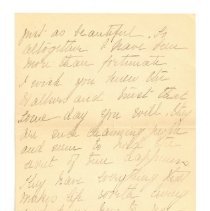 just as beautiful. So
altogether I have been
more than fortunate.
I wish you knew the
and trust that
some day you will. They
are such charming people
and seem to help the
of true happiness
They have something that
makes up worth